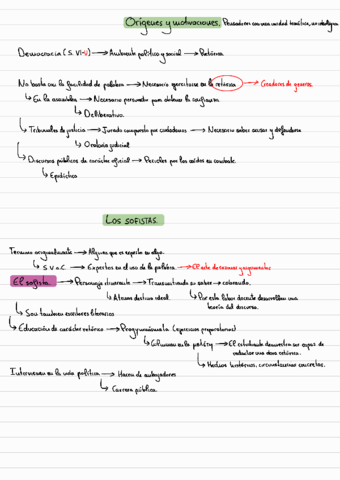 Orígenes y motivaciones. Pensadores con una unidad temática, no ideológica
Democracia (S. VI-V) → Ambiente político y social → Retórica.
No basta con la facilidad de palabra → Necesario ejercitarse en la retórica → Creadores de géneros.
↳ En la asamblea → Necesario persuadir para obtener la confianza.
↳ Deliberativa.
↳ Tribunales de justicia → Jurado compuesto por ciudadanos → Necesario saber acusar y defenderse.
↳ Oratoria judicial
↳ Discursos públicos de carácter oficial → Percibes por los caídos en combate.
↳ Epidíctico
Los sofistas.
Término originariamente → Alguien que es experto en algo.
↳ S. V a.C. → Expertos en el uso de la palabra → El arte de razonar y argumentar
El sofista. → Personaje itinerante → Transmitiendo su saber → cobrando.
↳ Atenas destino ideal. ↳ Por esta labor docente desarrollan una teoría del discurso.
↳ Son también escritores literarios
↳ Educación de carácter retórico → Programnásmata (ejercicios preparatorios)
↳ Culminan en la μελέτη → El estudiante demuestra ser capaz de
↳ Hechos históricos, circunstancias concretas.
Intervienen en la vida política → Hacen de embajadores
↳ Carrera pública.